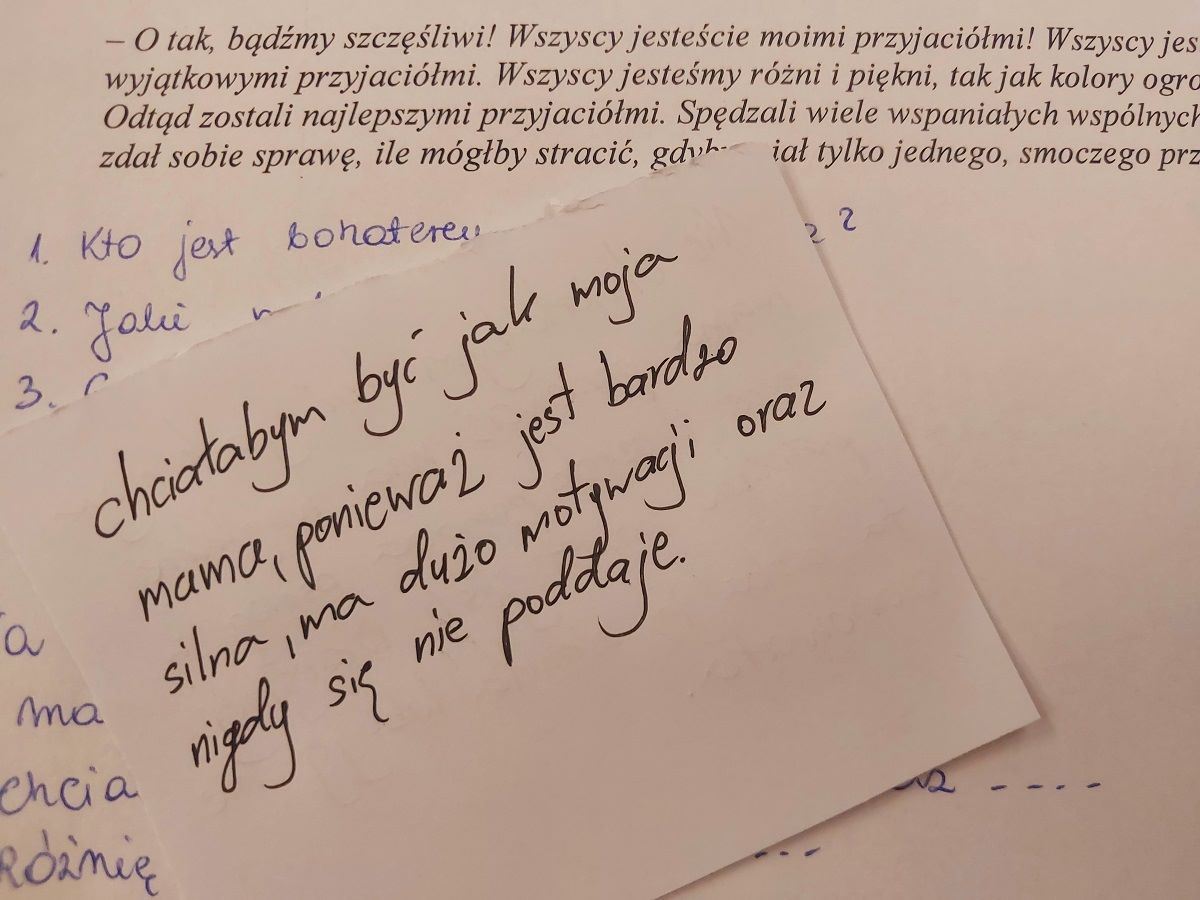 – O tak, bądźmy szczęśliwi! Wszyscy jesteście moimi przyjaciółmi! Wszyscy jes
wyjątkowymi przyjaciółmi. Wszyscy jesteśmy różni i piękni, tak jak kolory ogro
Odtąd zostali najlepszymi przyjaciółmi. Spędzali wiele wspaniałych wspólnych
zdał sobie sprawę, ile mógłby stracić, gdyby iał tylko jednego, smoczego prz
1. Kto jest bohaterem ?
2. Jakie
3.
chciałabym być jak moja
mama, ponieważ jest bardzo
silna, ma dużo motywacji oraz
nigdy się nie poddaje.
ma
chcia
Różnię